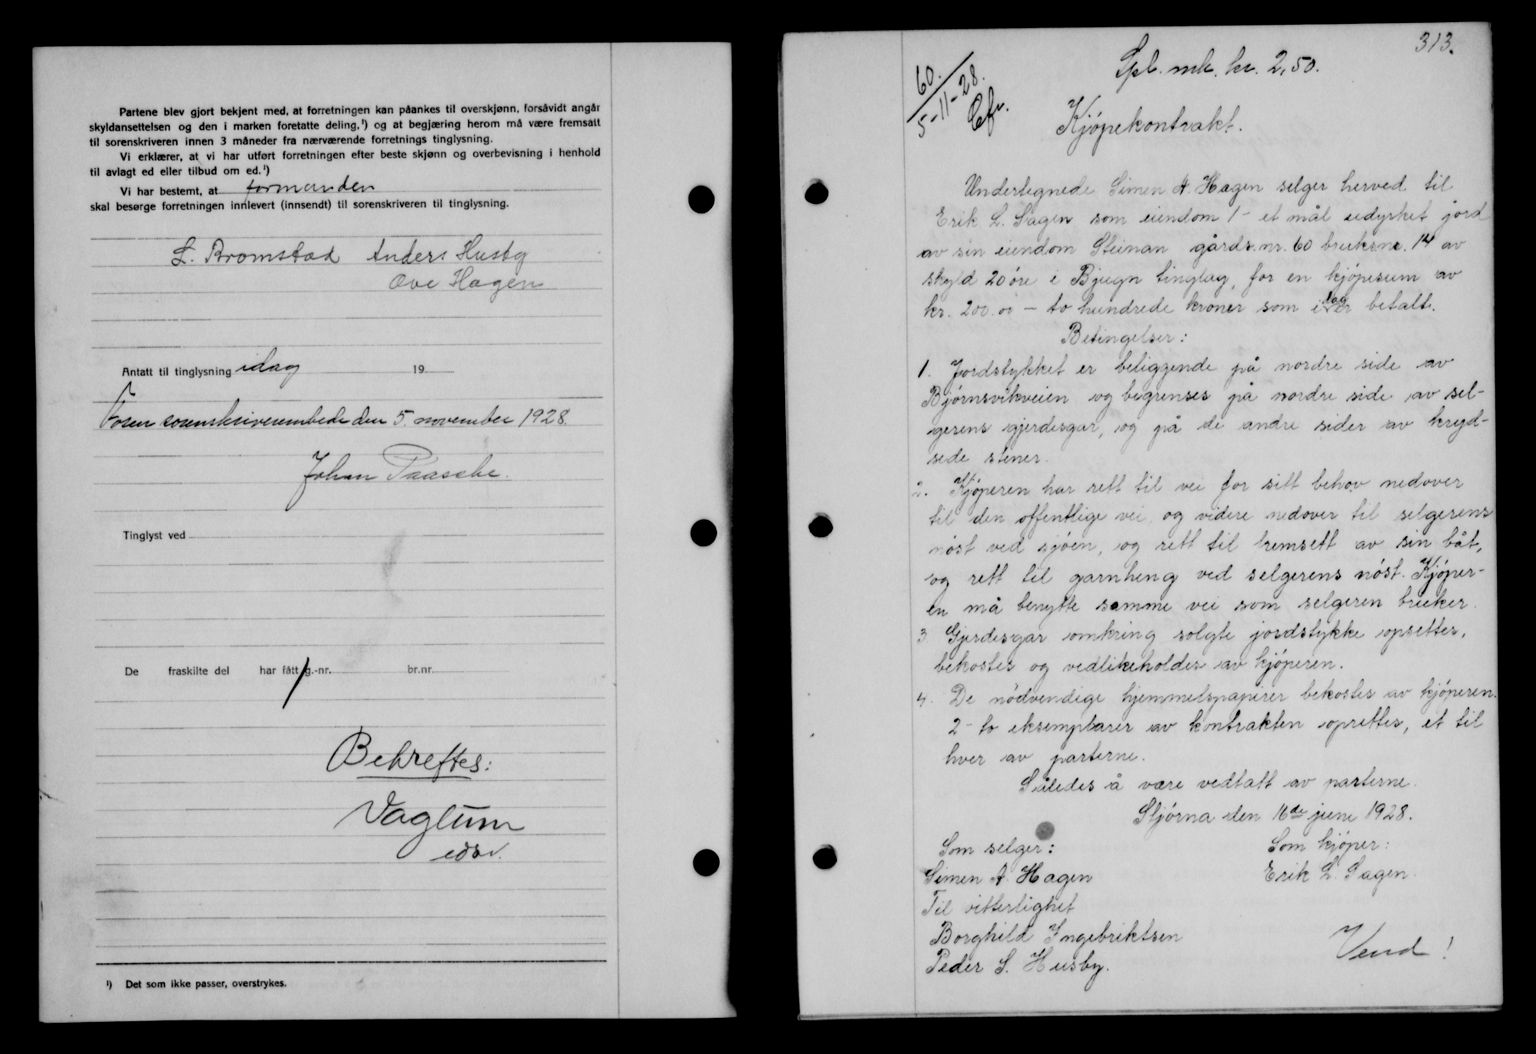 Partene blev gjort bekjent med, at forretningen kan påankes til overskjønn, forsåvidt angår
skyldansettelsen og den i marken foretatte deling,¹) og at begjæring herom må være fremsatt
til sorenskriveren innen 3 måneder fra nærværende forretnings tinglysning.
Vi erklærer, at vi har utført forretningen efter beste skjønn og overbevisning i henhold
til avlagt ed eller tilbud om ed.¹)
Vi har bestemt, at formanden
skal besørge forretningen innlevert (innsendt) til sorenskriveren til tinglysning.
L. Bromstad Anders Husby
Ove Hagen
Antatt til tinglysning idag 19
Fosen sorenskriverembede den 5. november 1928.
Johan Paasche.
Tinglyst ved
De fraskilte del har fått g.-nr. br.nr.
Bekreftes:
Vaglum
edsv.
¹) Det som ikke passer, overstrykes.
313.
Spl. mk. kr. 2,50.
60.
5-11-28.
Cfr.
Kjöpekontrakt.
Undertegnede Simen A. Hagen selger herved til
Erik L. Sagen som eiendom 1 - et mål udyrket jord
av sin eiendom Steinan gårds.nr. 60 bruksnr. 14 av
skyld 20 öre i Bjugn tinglag, for en kjöpesum av
kr. 200.00 - to hundrede kroner som idag er betalt.
Betingelser:
1. Jordstykket er beliggende på nordre side av
Björnsvikveien og begrenses på nordre side av sel-
gerens gjerdesgar, og på de andre sider av kryd-
sede stener.
2. Kjöperen har rett til vei for sitt behov nedover
til den offentlige vei og videre nedover til selgerens
nöst ved sjöen, og rett til hemsett av sin båt,
og rett til garnheng ved selgerens nöst. Kjöper-
en må benytte samme vei som selgeren bruker.
3 Gjerdesgar omkring solgte jordstykke opsettes,
bekostes og vedlikeholdes av kjöperen.
4. De nödvendige hjemmelspapirer bekostes av kjöperen.
2 - to eksemplarer av kontrakten oprettes, et til
hver av parterne.
Således å være vedtatt av parterne.
Stjörna den 16de juni 1928.
Som selger: Som kjöper:
Simen A. Hagen Erik L. Sagen.
Til vitterlighet
Borghild Ingebriktsen
Peder S. Husby.
Vend!